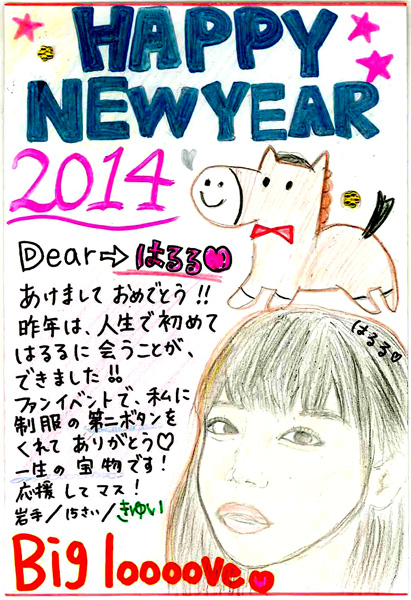 HAPPY
NEW YEAR
2014
Dear⇨はるる♥
あけまして おめでとう!!
昨年は、人生で初めて
はるるに 会うことが、
できました!!
ファンイベントで、私に
制服の 第一ボタンを
くれて ありがとう♡
一生の 宝物です!
応援 してマス!
岩手/15さい/きゆい
はるる♡
Big looooove♥